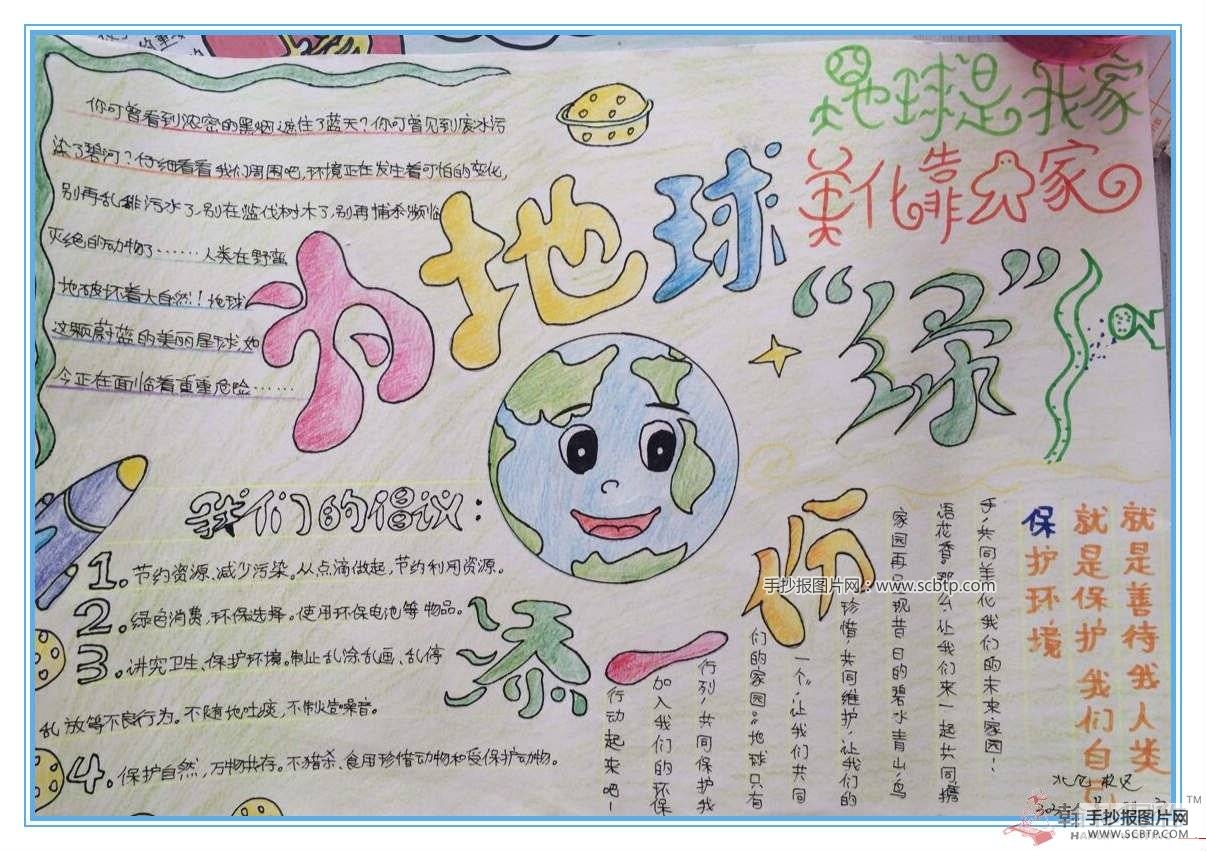 地球是我家
美化靠大家
为地球“绿”
添一师
你可曾看到浓密的黑烟遮住了蓝天？你可曾见到废水污
染了碧河？仔细看看我们周围吧，环境正在发生着可怕的变化，
别再乱排污水了，别在监伐树木了，别再捕杀濒临
灭绝的动物了……人类在野蛮
地破坏着大自然！地球
这颗蔚蓝的美丽星球如
今正在面临着重重危险……
我们的倡议：
1.节约资源、减少污染。从点滴做起，节约利用资源。
2.绿色消费，环保选择。使用环保电池等物品。
3.讲究卫生、保护环境。制止乱涂乱画、乱停
乱放等不良行为。不随地吐痰，不制造噪音。
4.保护自然，万物共存。不猎杀、食用珍惜动物和受保护动物。
保护环境
就是保护我们自己
就是善待我人类
行动起来吧！
加入我们的环保
行列，共同保护我
们的家园。地球只有
一个，让我们共同
珍惜共同维护，让我们的
家园再只现昔日的碧水青山，鸟
语花香。那么让我们来一起共同携
手，共同美化我们的未来家园！
手抄报图片网：www.scbtp.com
手抄报图片网
WWW.SCBTP.COM
TM